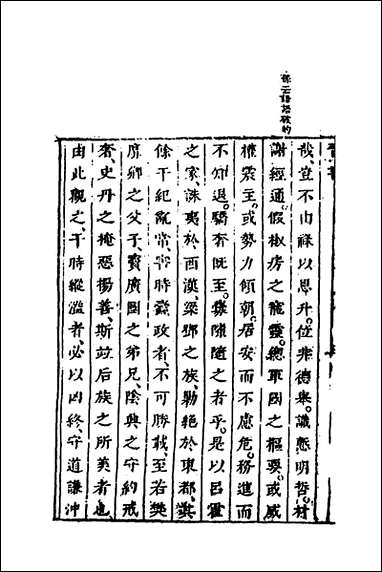 孫云語語破的
哉、豈不由祿以恩升。位非德舉。識慙明哲。材
謝經通。假椒房之寵靈。總軍國之樞要。或威
權震主。或勢力傾朝。居安而不慮危。務進而
不知退。驕奢既至。釁隙隨之者乎。是以呂霍
之家、誅夷於西漢、梁鄧之族、勦絕於東都、其
餘干紀亂常害時蠹政者、不可勝載、至若樊
靡卿之父子、竇廣國之弟兄、陰興之守約戒
奢、史丹之掩惡揚善、斯竝后族之所美者也、
由此觀之、干時縱溢者、必以凶終、守道謙沖